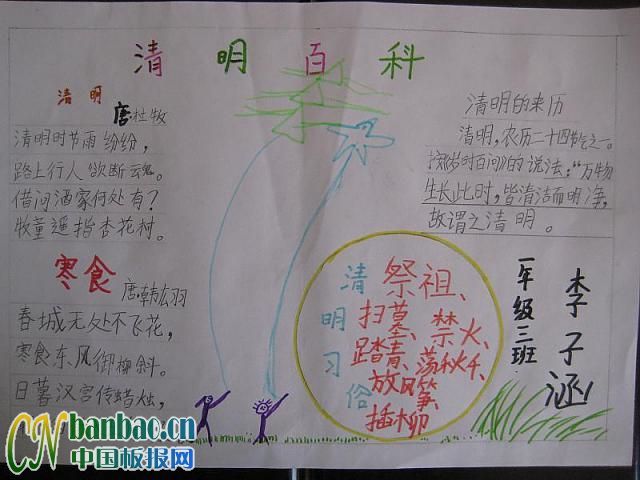 清明百科
清明
唐·杜牧
清明时节雨纷纷,
路上行人欲断魂。
借问酒家何处有?
牧童遥指杏花村。
寒食
唐·韩厷羽
春城无处不飞花,
寒食东风御柳斜。
日暮汉宫传蜡烛,
清明的来历
清明,农历二十四节气之一。
按《岁时百问》的说法:“万物
生长此时,皆清洁而明净,
故谓之清明。
清明习俗
祭祖、
扫墓、禁火、
踏青、荡秋千、
放风筝、
插柳
一年级三班
李子涵
CN banbao.cn
中国板报网